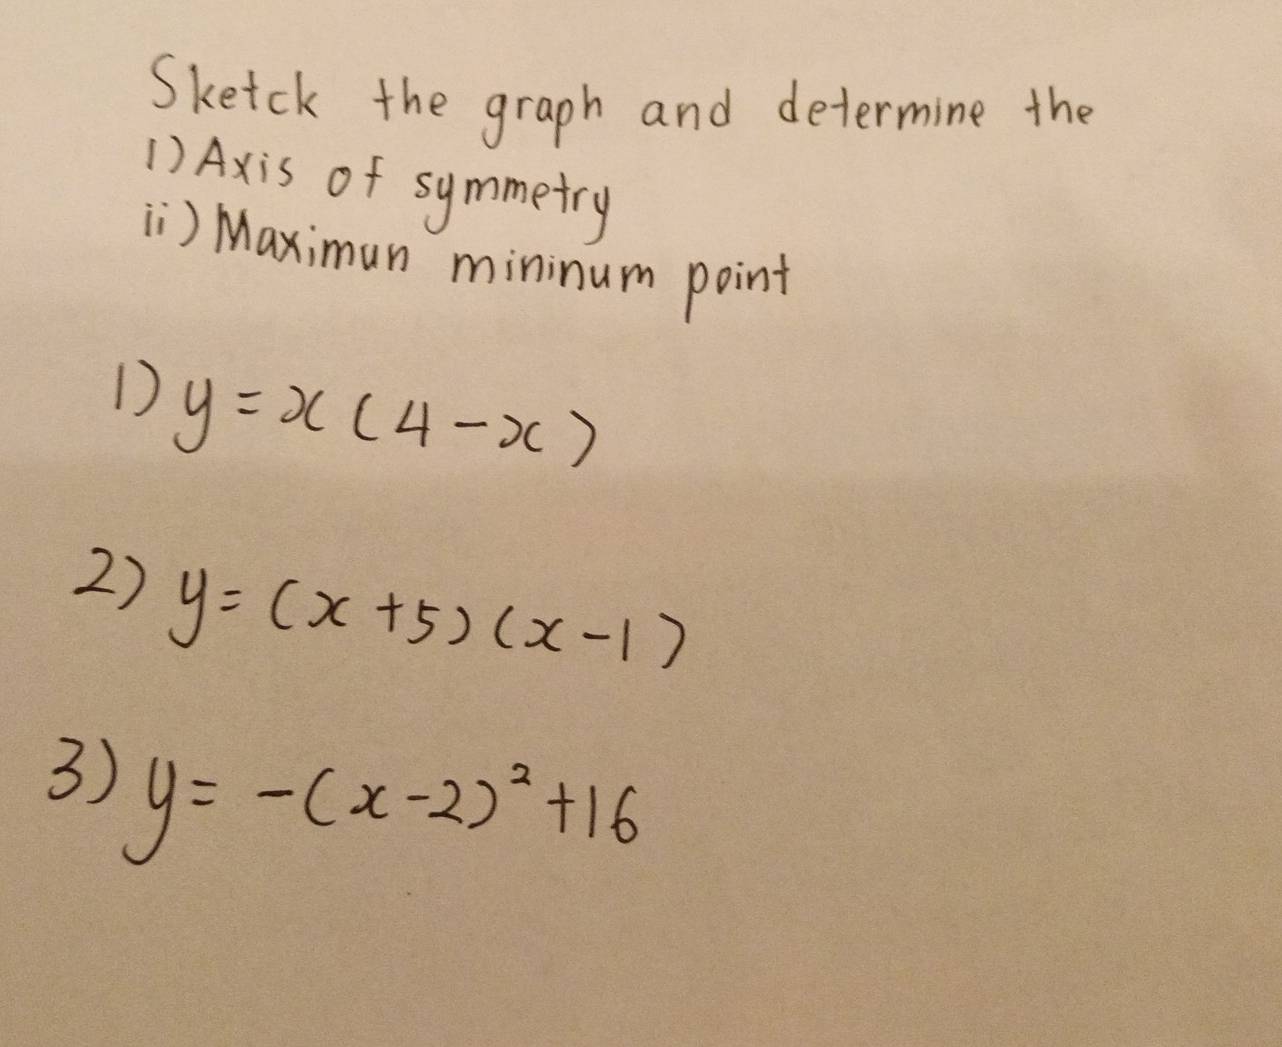 Sketck the graph and determine the
i) Axis of symmetry
ii) Maximun mininum point
1) y = x (4 - x)
2) y = (x + 5) (x - 1)
3) y = -(x - 2)² + 16